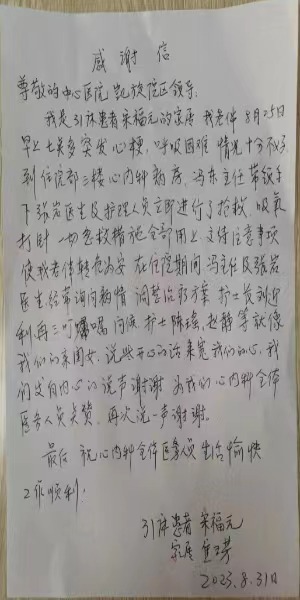 感谢信
尊敬的中心医院 凯旋院区领导:
我是31床患者宋福元的家属 我老伴8月25日
早上七点多突发心梗,呼吸困难 情况十分不好
到住院部三楼心内科病房,冯东主任带领手
下张岩医生及护理人员立即进行了抢救,吸氧
打针 一切急救措施全部用上 交待注意事项
使我老伴转危为安 在住院期间冯主任及张岩
医生经常询问病情 调整治疗方案 护士长刘近
利再三叮嘱 问候 护士陈瑶,赵静等就像
我们的亲闺女,说些开心的话来宽我们的心,我
们发自内心的说声谢谢 为我们心内科全体
医务人员点赞,再次说一声谢谢。
最后 祝心内科全体医务人员 生活愉快
工作顺利!
31床患者 宋福元
家属
2023.8.31日